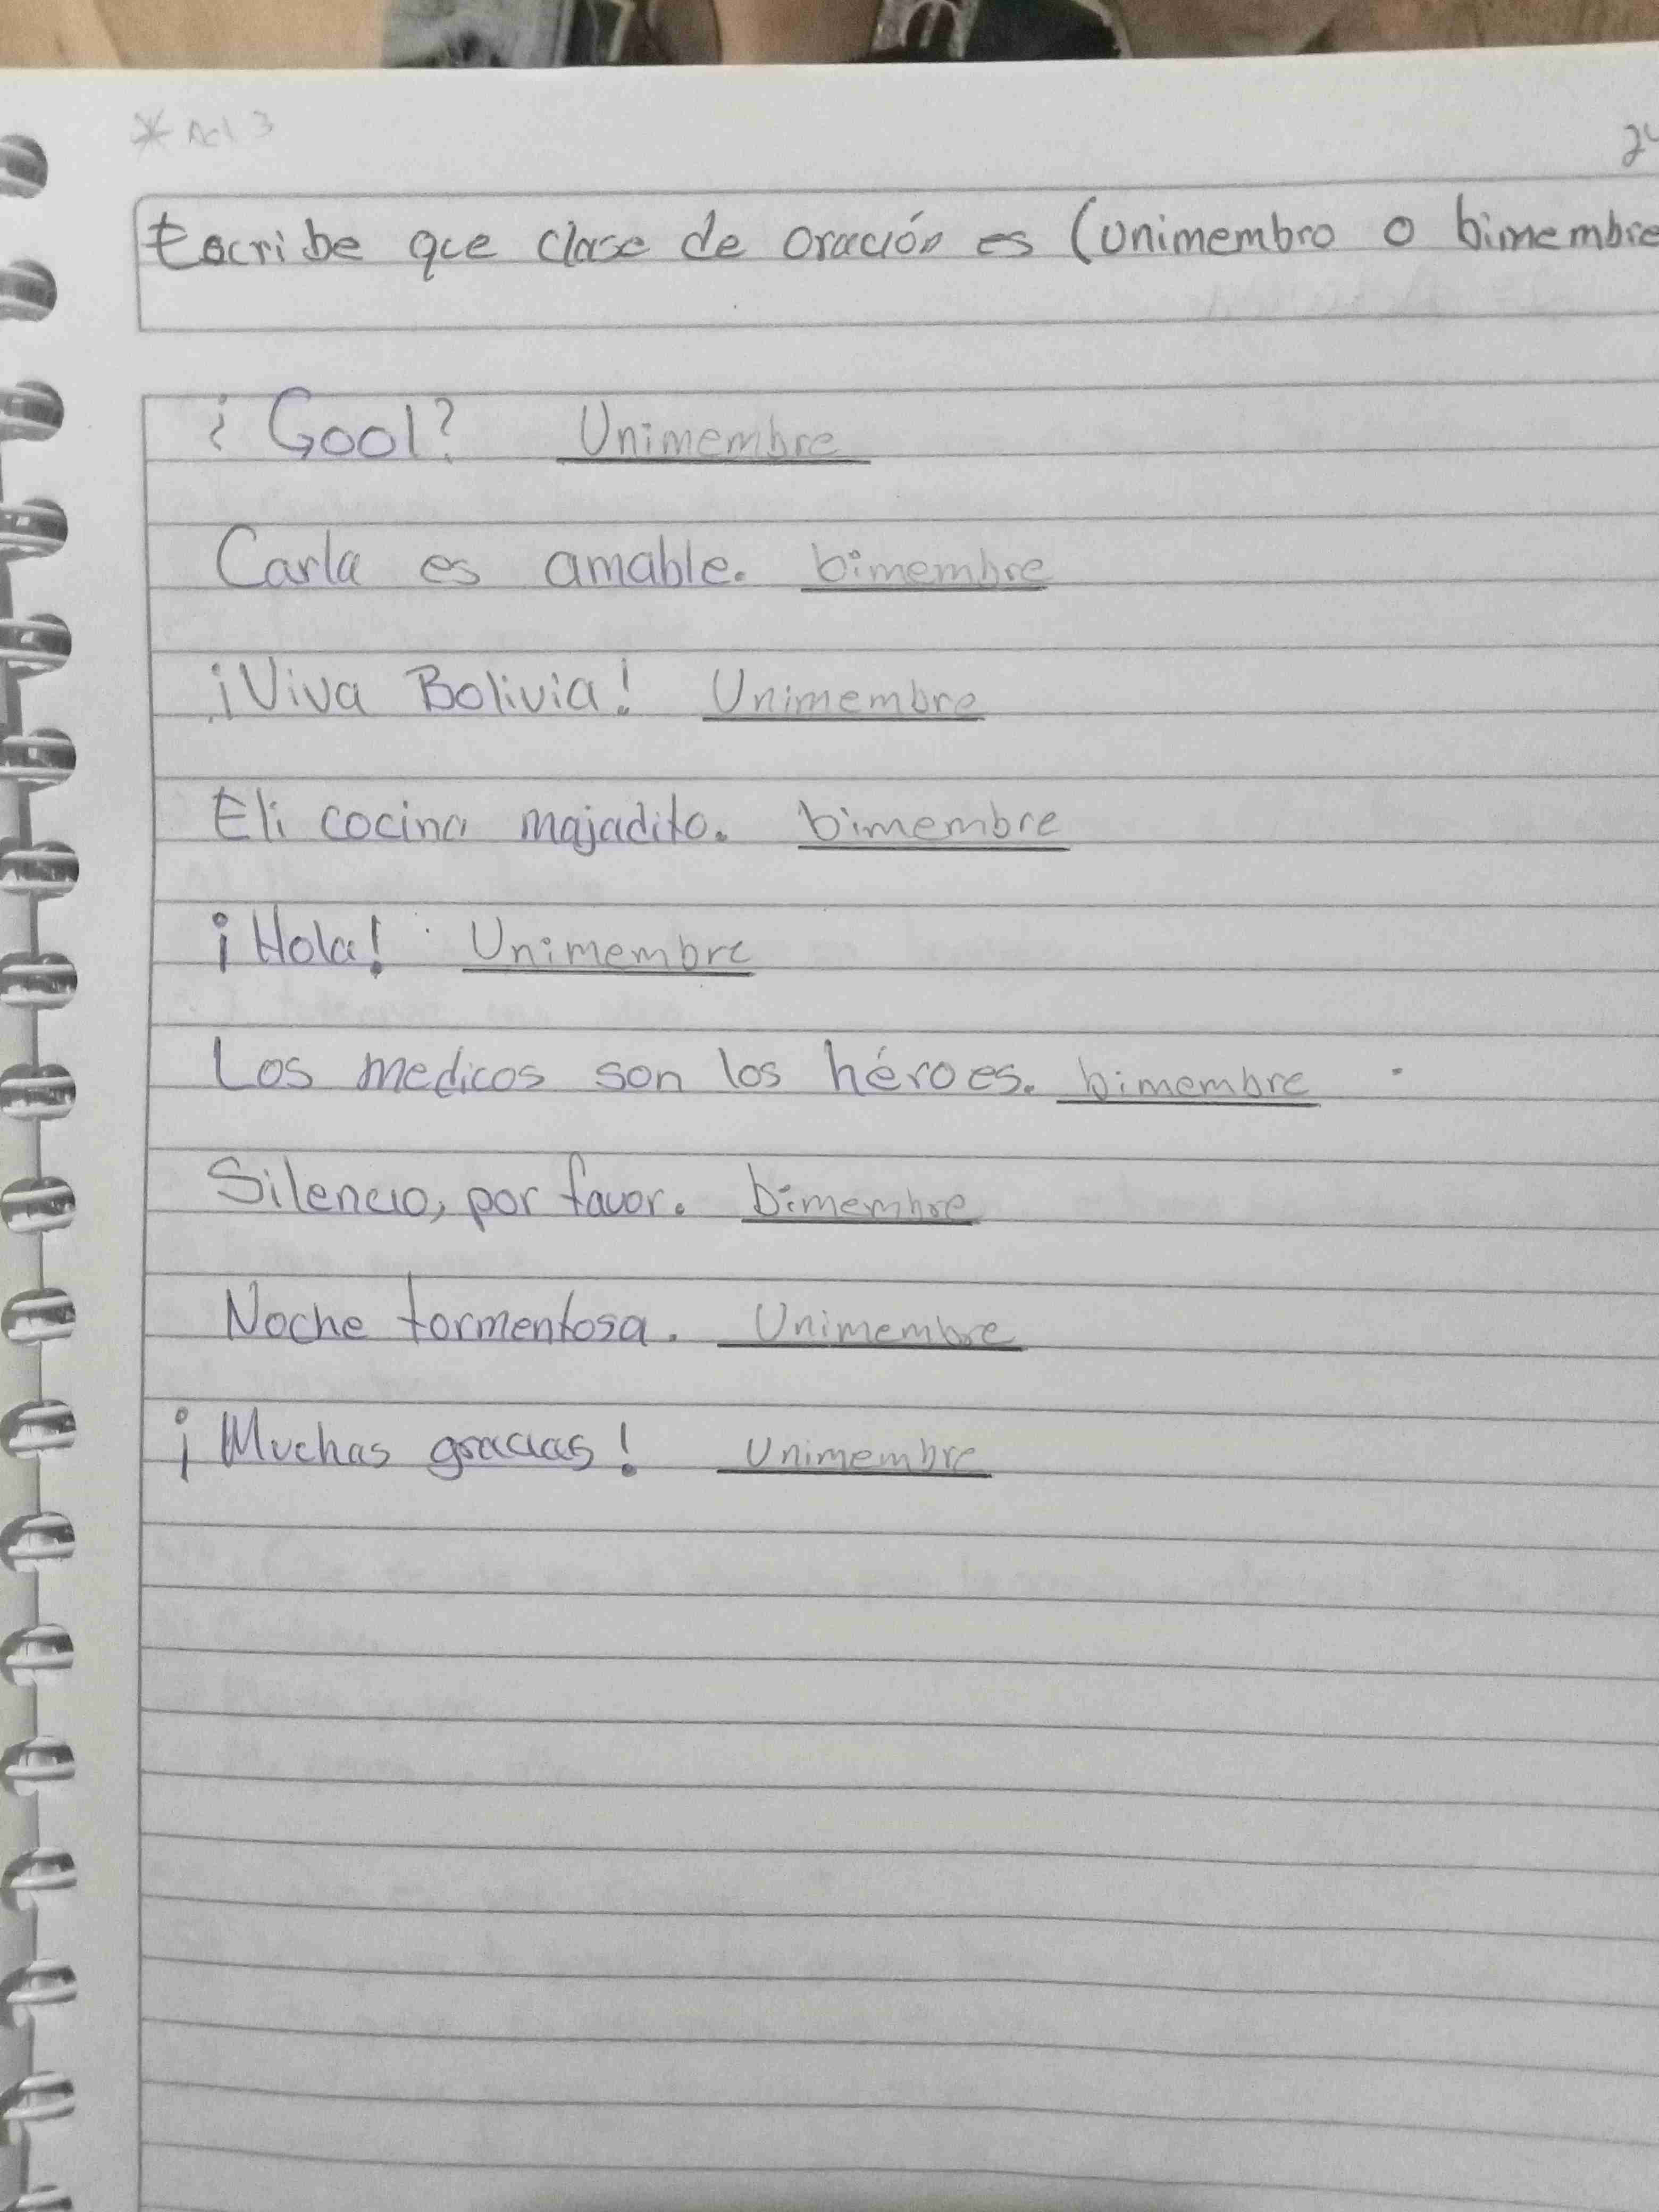 * Act 3
Escribe que clase de oración es (unimembro o bimembre
¿Gool? Unimembre
Carla es amable. bimembre
¡Viva Bolivia! Unimembre
Eli cocina majadito. bimembre
¡Hola! Unimembre
Los medicos son los héroes. bimembre
Silencio, por favor. bimembre
Noche tormentosa. Unimembre
¡Muchas gracias! Unimembre